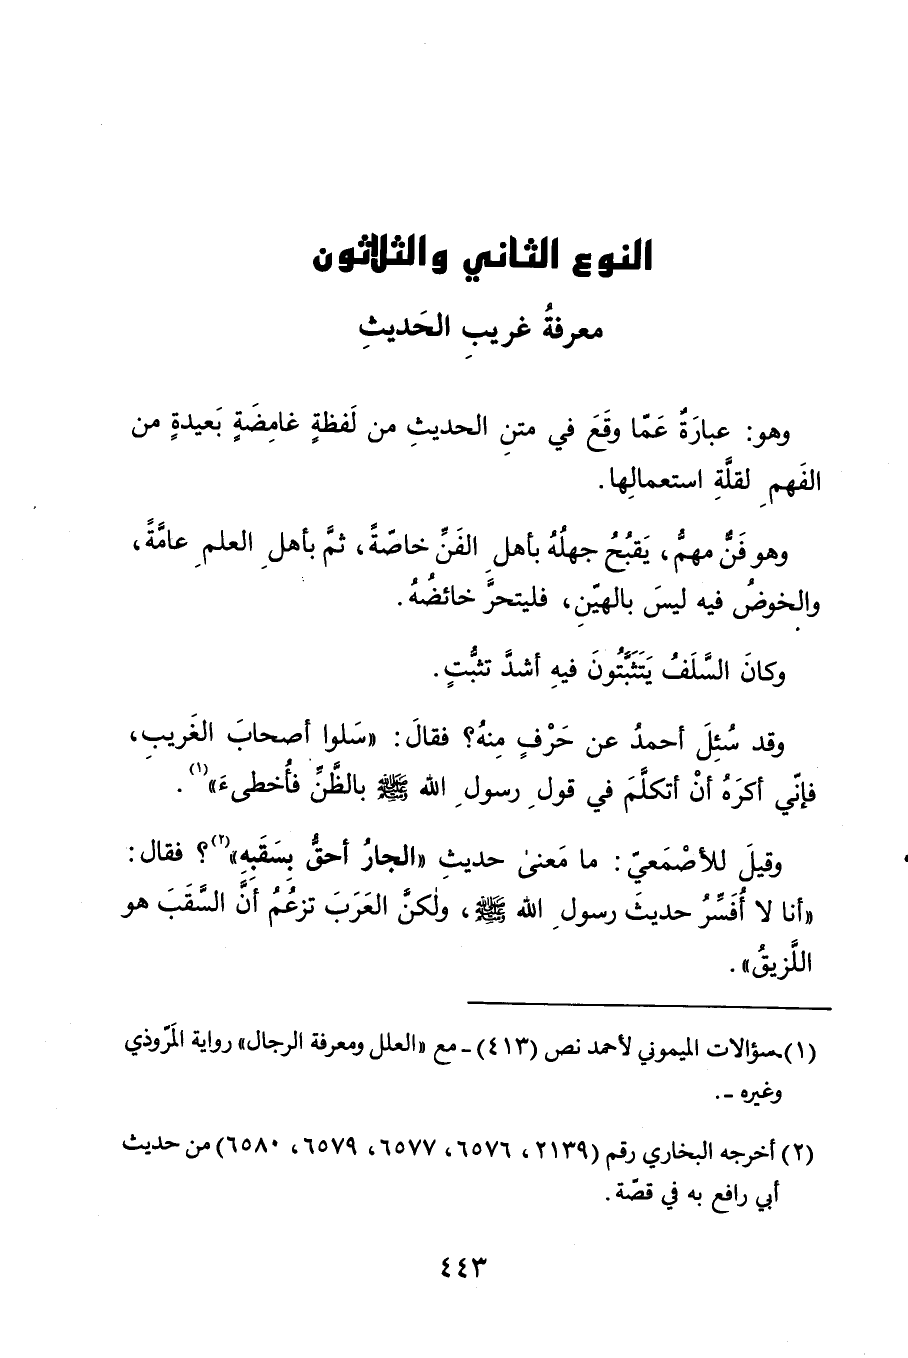 النوع الثاني والثلاثون
معرفةُ غريبِ الحَديثِ
وهو: عبارَةٌ عَمّا وقَعَ في متنِ الحديثِ من لَفظةٍ غامِضَةٍ بَعيدةٍ من
الفَهمِ لقلَّةِ استعمالِها.
وهو فَنٌّ مهمٌّ، يَقبُحُ جهلُهُ بأهلِ الفَنِّ خاصّةً، ثمَّ بأهلِ العلمِ عامَّةً،
والخوضُ فيه ليسَ بالهيّنِ، فليتحرَّ خائضُهُ.
وكانَ السَّلَفُ يَتَثَبَّتُونَ فيهِ أشدَّ تثبُّتٍ.
وقد سُئِلَ أحمدُ عن حَرْفٍ مِنهُ؟ فقالَ: «سَلوا أصحابَ الغَريبِ،
فإنّي أكرَهُ أنْ أتكلَّمَ في قولِ رسولِ الله ﷺ بالظَّنِّ فأُخطىءَ»(١).
وقيلَ للأصْمَعيّ: ما مَعنىٰ حديثِ «الجارُ أحقُّ بِسَقَبِهِ»(٢)؟ فقال:
«أنا لا أُفَسِّرُ حديثَ رسولِ الله ﷺ، ولٰكنَّ العَرَبَ تزعُمُ أنَّ السَّقَبَ هو
اللَّزيقُ».
(١) سؤالات الميموني لأحمد نص (٤١٣) ـ مع «العلل ومعرفة الرجال» رواية المَرّوذي
وغيره ـ.
(٢) أخرجه البخاري رقم (٢١٣٩، ٦٥٧٦، ٦٥٧٧، ٦٥٧٩، ٦٥٨٠) من حديث
أبي رافع به في قصّة.
٤٤٣